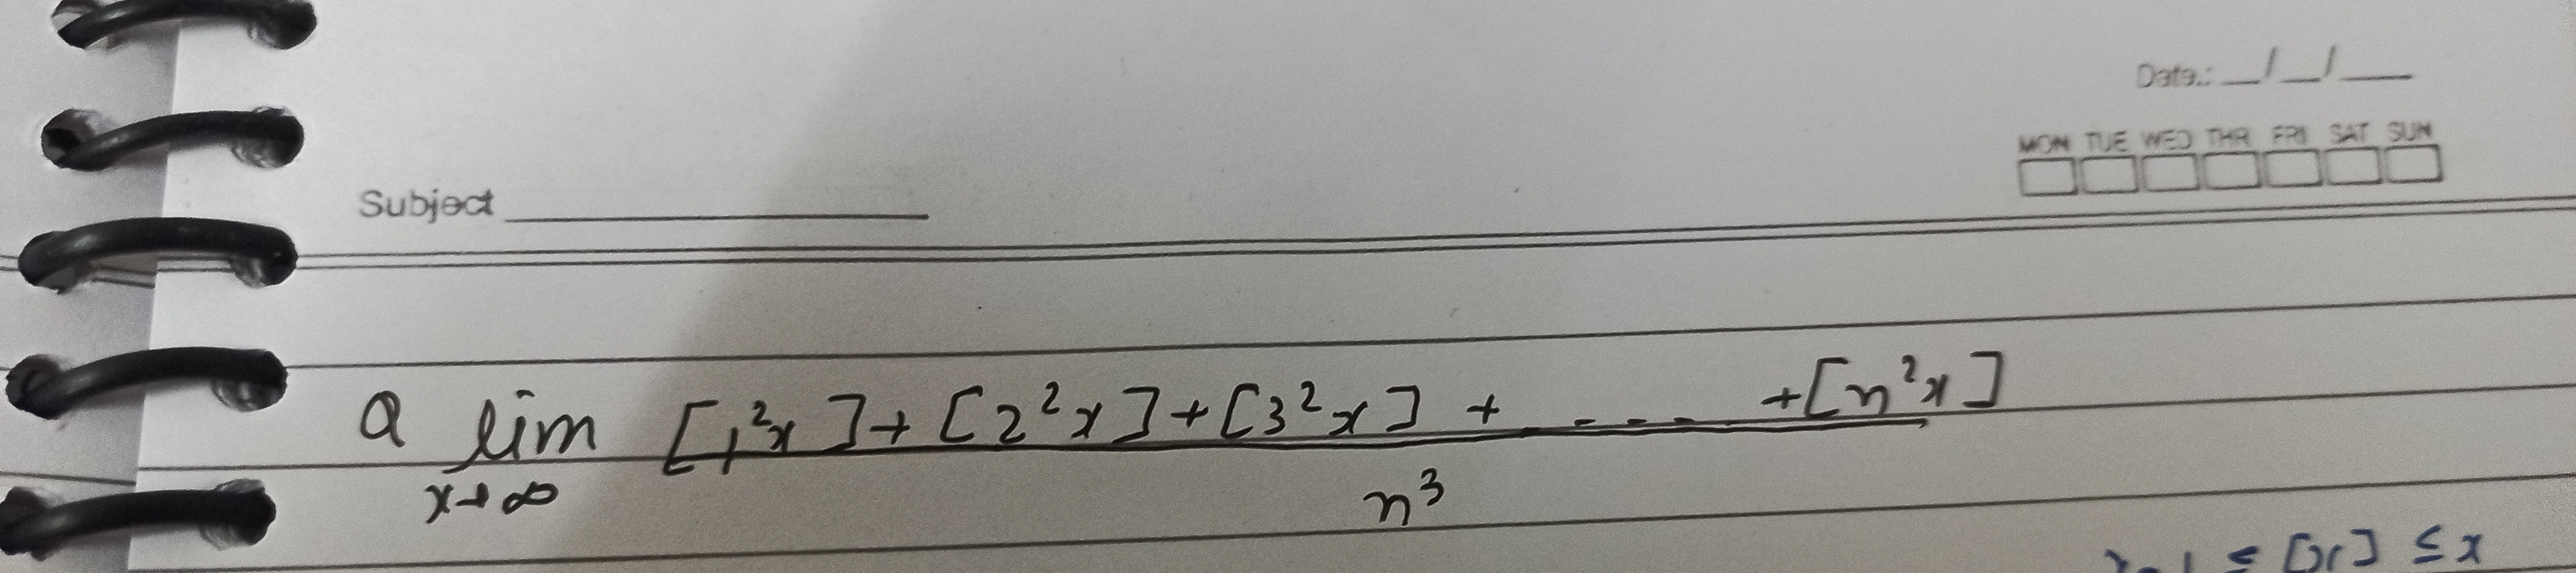 Date.: __/__/___
MON TUE WED THR FRI SAT SUN
Subject
Q lim x→∞ [1²x]+[2²x]+[3²x] + ---- +[n²x]
n³
x-1 ≤ [x] ≤ x